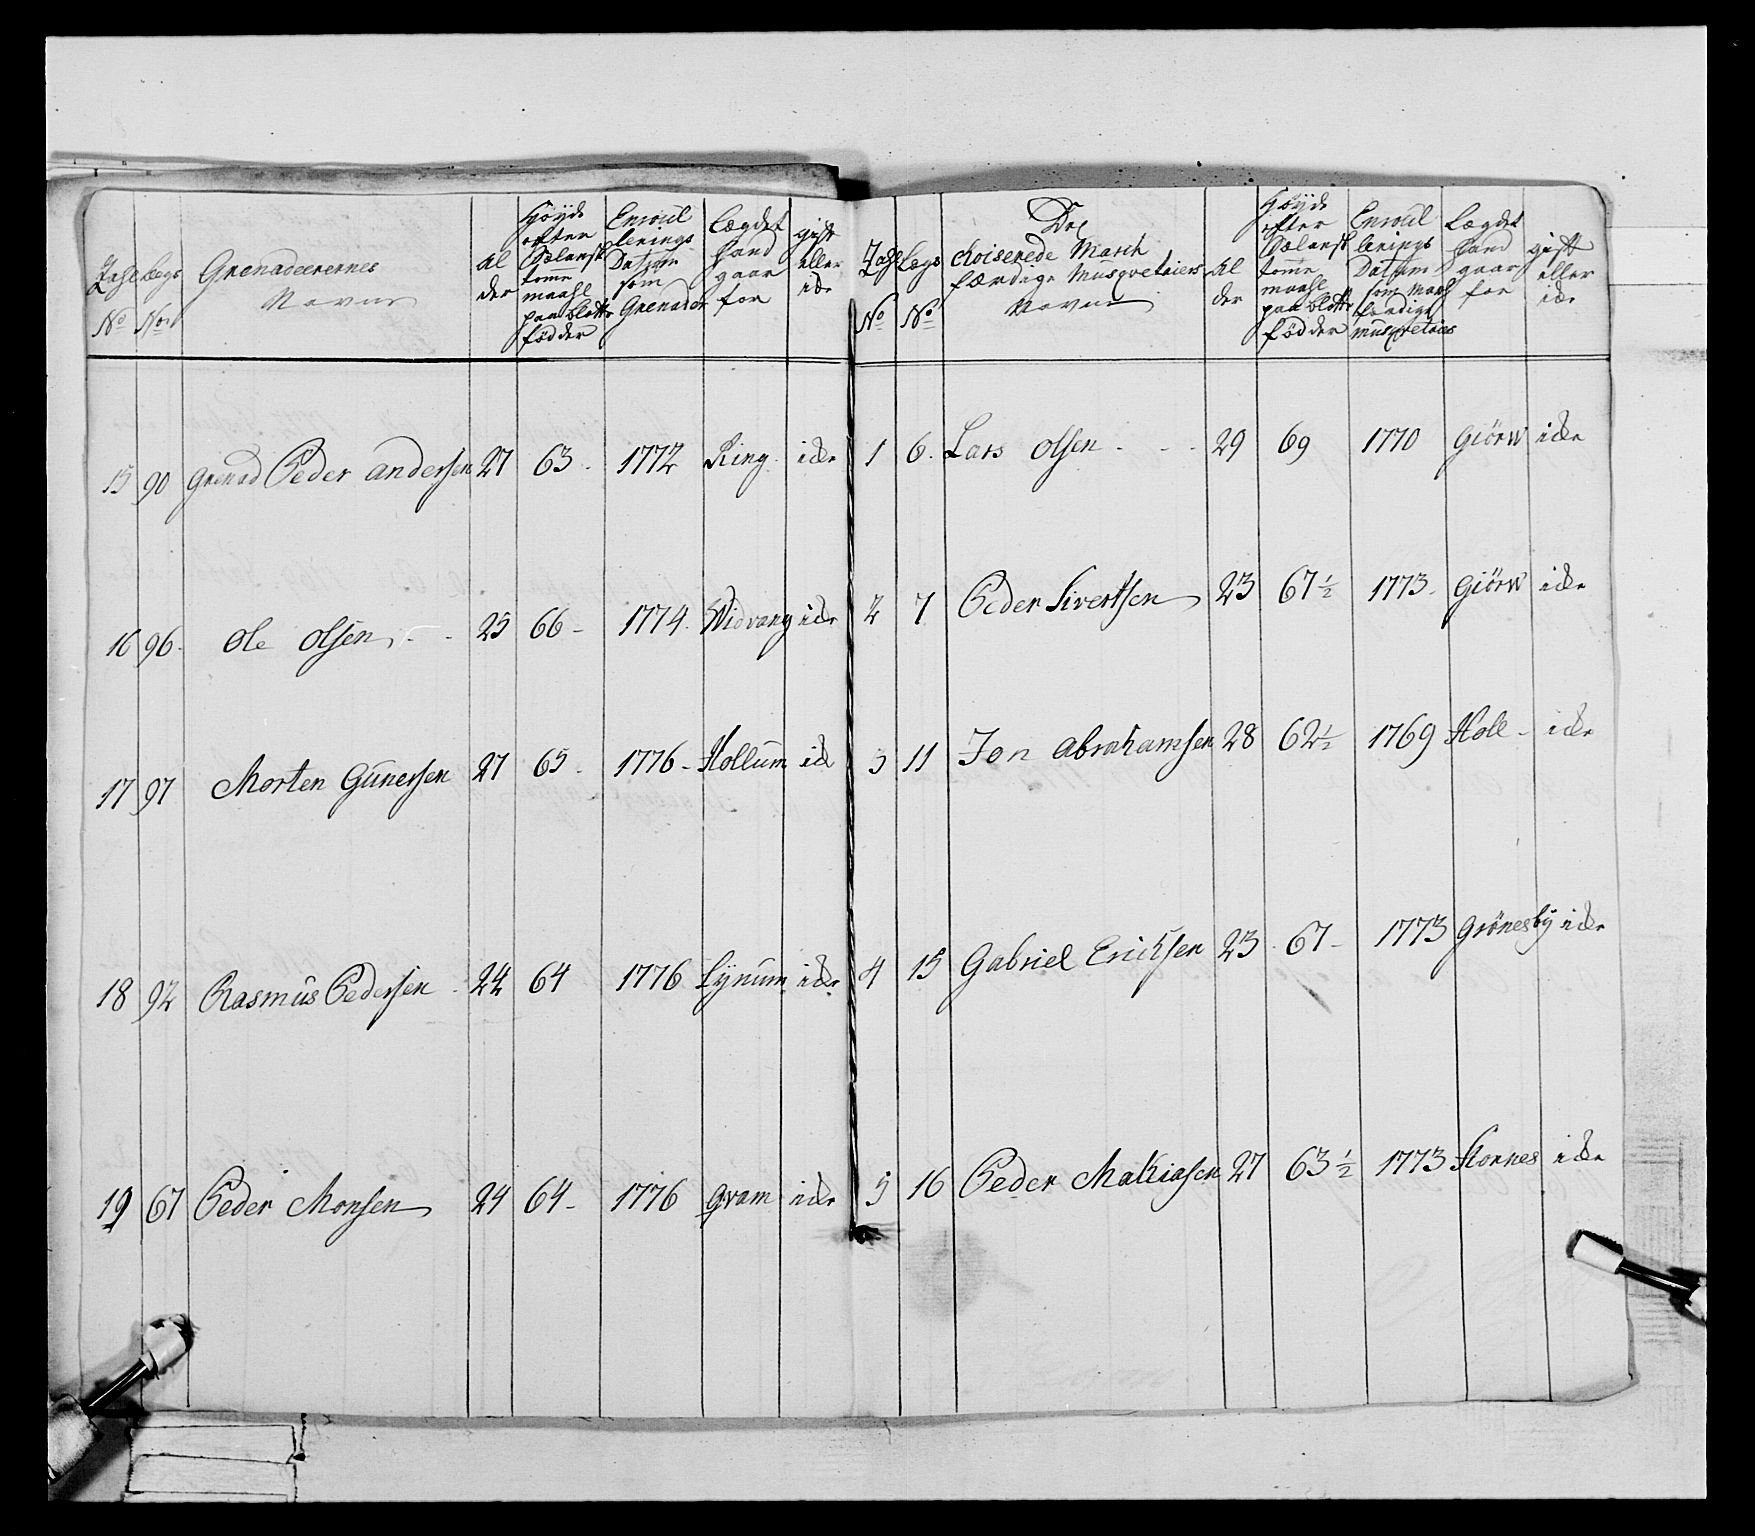 Lægs
No
Nor
Grenadeerernes
Navne
Al
der
Høyde
efter
Siælansk
tomme
maahl
paa blotte
fødder
Enroul
lerings
Datum
som
Grenader
Lægdet
hand
gaar
for
gift
eller
icke
15 90 Grenad Peder Andersen 27 63 - 1772 Ring. icke
16 96. Ole Olsen - - 25 66 - 1774. Widvang icke
17 97 Morten Gunersen 27 65 - 1776 - Hollum
18 92 Rasmus Pedersen - 24 64 1776 Lÿnum icke
19 67 Peder Monsen 24 64 - 1776 Qvam icke
De
Lægs
No
No
March
færdige Musqveteiers
Navne
Al
der
Høyde
efter
Siælansk
tomme
maahl
paa blotte
fødder
Enroul
lerings
Datum
som March
færdige
musqveteers
Lægdet
hand
gaar
for
gift
eller
icke
1 6. Lars Olsen - - - 29 69 1770 Giörw icke
2 7 Peder Sivertsen 23 67½ 1773. Giörw icke
3 11 Jon Abrahamsen 28 62½ 1769 Holl - icke
4 15 Gabriel Ericksen 23 67 - 1773 Grönesbÿ icke
5 16 Peder Matiasen 27 63½ 1773 icke